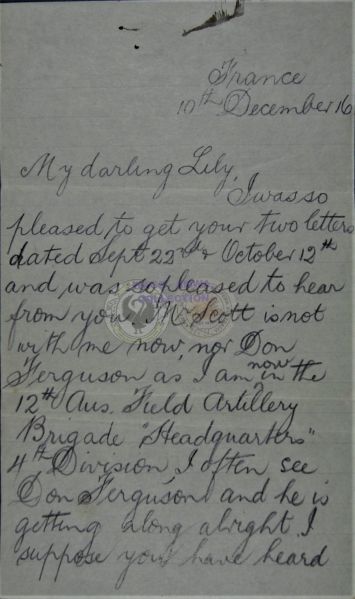 France
10th December 16
My darling Lily,
I was so
pleased to get your two letters
dated Sept 22nd & October 12th
and was so pleased to hear
from you. McScott is not
with me now, nor Don
Ferguson as I am now in the
12th Aus. Field Artillery
Brigade "Headquarters"
4th Division, I often see
Don Ferguson and he is
getting along alright I
suppose you have heard
COLLECTION